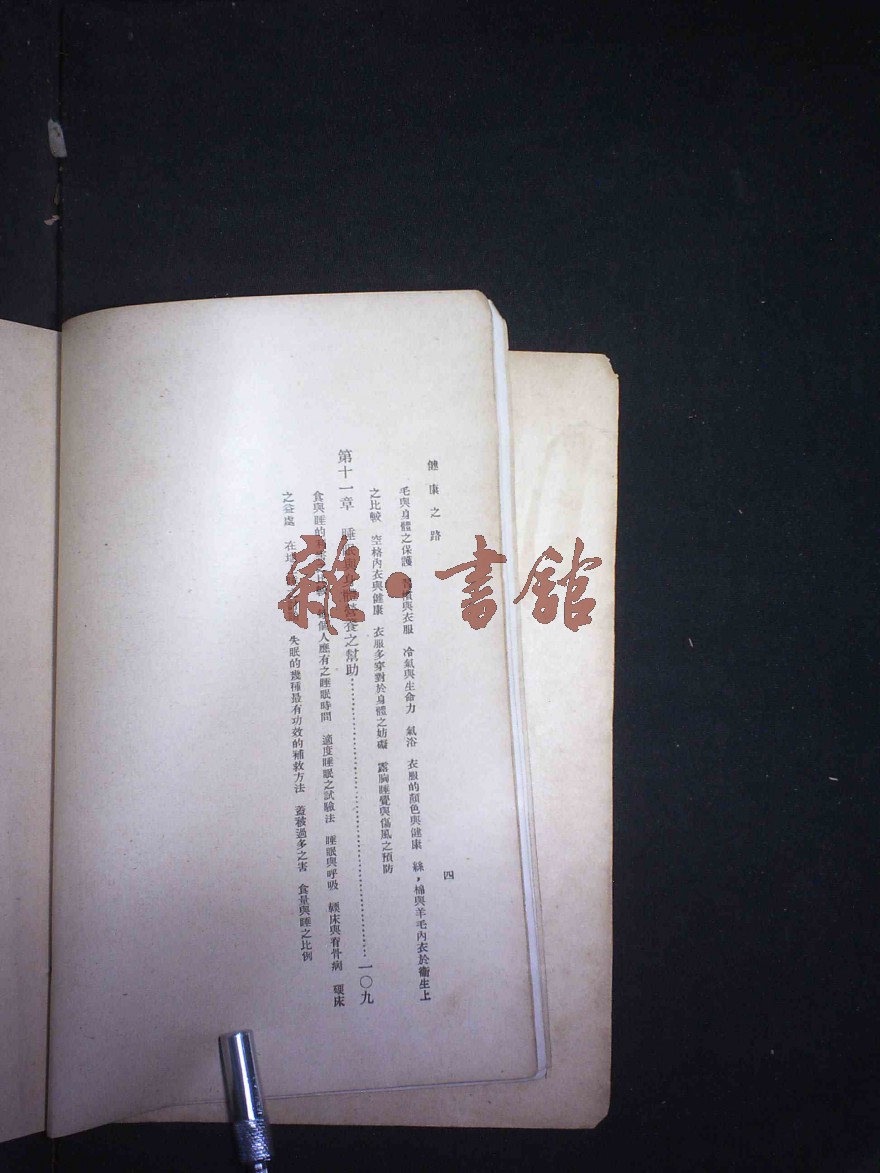 健康之路
四
毛與身體之保護 與衣服 冷氣與生命力 氣浴 衣服的顏色與健康 絲，棉與羊毛內衣於衛生上
之比較 空格內衣與健康 衣服多穿對於身體之妨礙 露胸睡覺與傷風之預防
第十一章 睡眠與身體營養之幫助⋯⋯⋯⋯⋯⋯⋯⋯一〇九
食與睡的 個人應有之睡眠時間 適度睡眠之試驗法 睡眠與呼吸 硬床與脊骨病 硬床
之益處 在地 失眠的幾種最有功效的補救方法 蓋被過多之害 食量與睡之比例
雜·書館